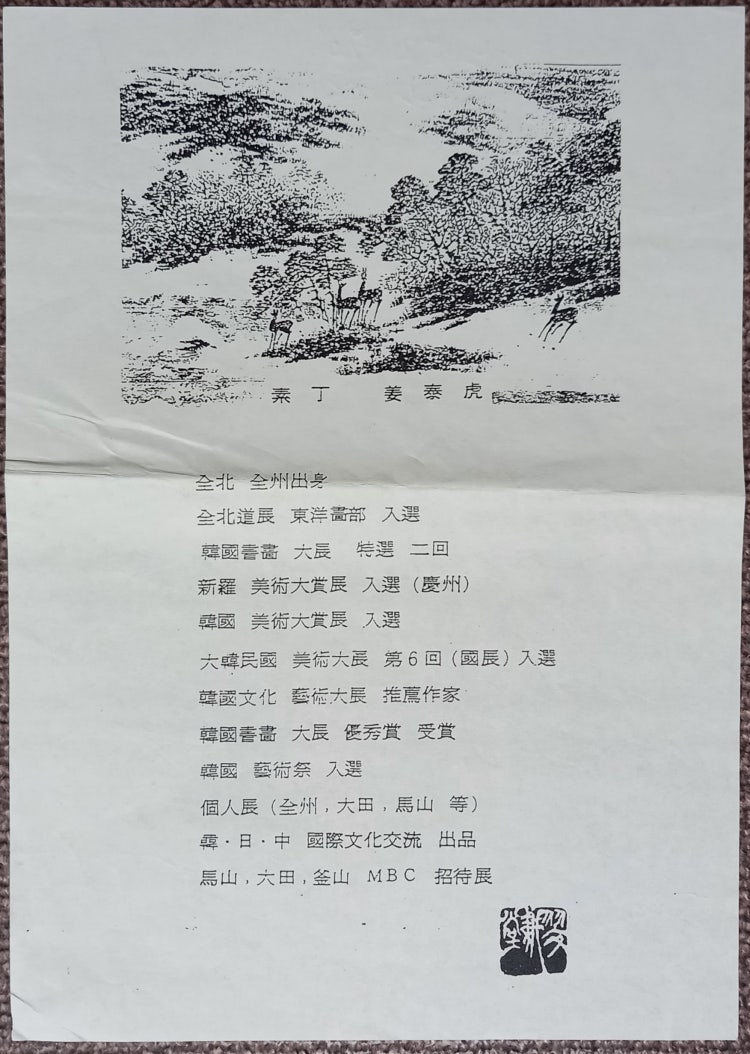 素丁 姜泰虎
全北 全州出身
全北道展 東洋畵部 入選
韓國書畵 大展 特選 二回
新羅 美術大賞展 入選 (慶州)
韓國 美術大賞展 入選
大韓民國 美術大展 第6回 (國展) 入選
韓國文化 藝術大展 推薦作家
韓國書畵 大展 優秀賞 受賞
韓國 藝術祭 入選
個人展 (全州, 大田, 馬山 等)
韓·日·中 國際文化交流 出品
馬山, 大田, 釜山 MBC 招待展